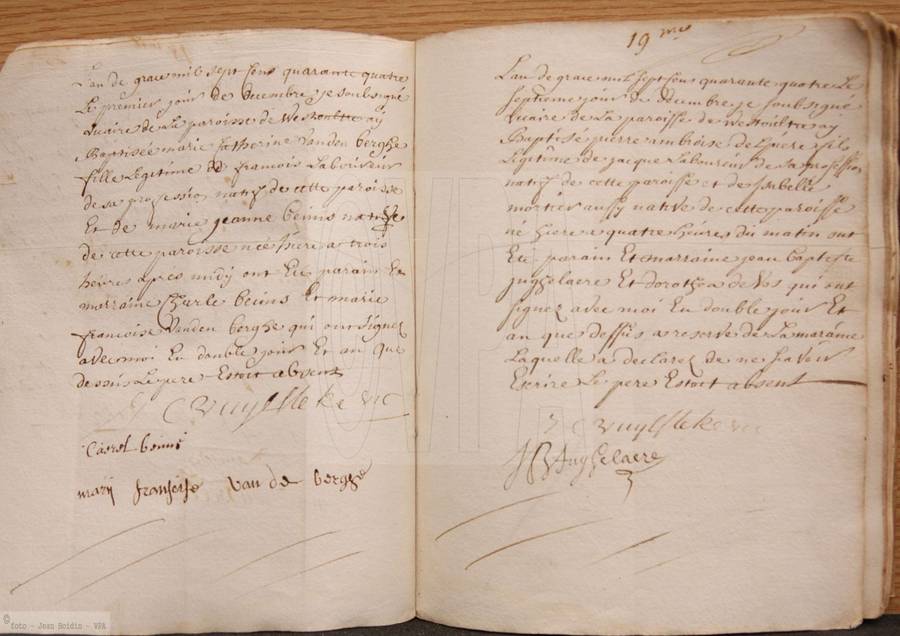 L'an de grace mil sept sens quarante quatre
Le premier jour de decembre je soubsigné
vicaire de La paroisse de Westoultre ay
Baptisée marie Catherine Vanden berghe
fille Legitime de francois Laboureur
de sa profession natif de cette paroisse
Et de marie jeanne beiins native
de cette paroisse née hiere a trois
heures apres midy ont Eté parain Et
marraine Charle beiins Et marie
francoise Vanden berghe qui ont signez
avec moi En double jour Et an que
dessus Le pere Estoit absent
C Vuylsteke vic
Carel beiins
marij franchise van de berghe
19 me
L'an de grace mil sept sens quarante quatre Le
septieme jour de decembre je soubsigné
vicaire de La paroisse de Westoultre ay
Baptisé pierre ambroise delpiere fils
Legitime de jacque Laboureur de sa profession
natif de cette paroisse et de Isabelle
mortier aussy native de cette paroisse
ne hiere a quatre heures du matin ont
Eté parain Et marraine jean baptiste
hughelaere Et dorothea de Vos qui ont
signez avec moi En double jour Et
an que dessus a reserve de La maraine
Laquelle a declarez de ne savoir
Ecrire Le pere Estoit absent
C Vuylsteke vic
J B hughelaere
© foto - Jean Boidin - VPA